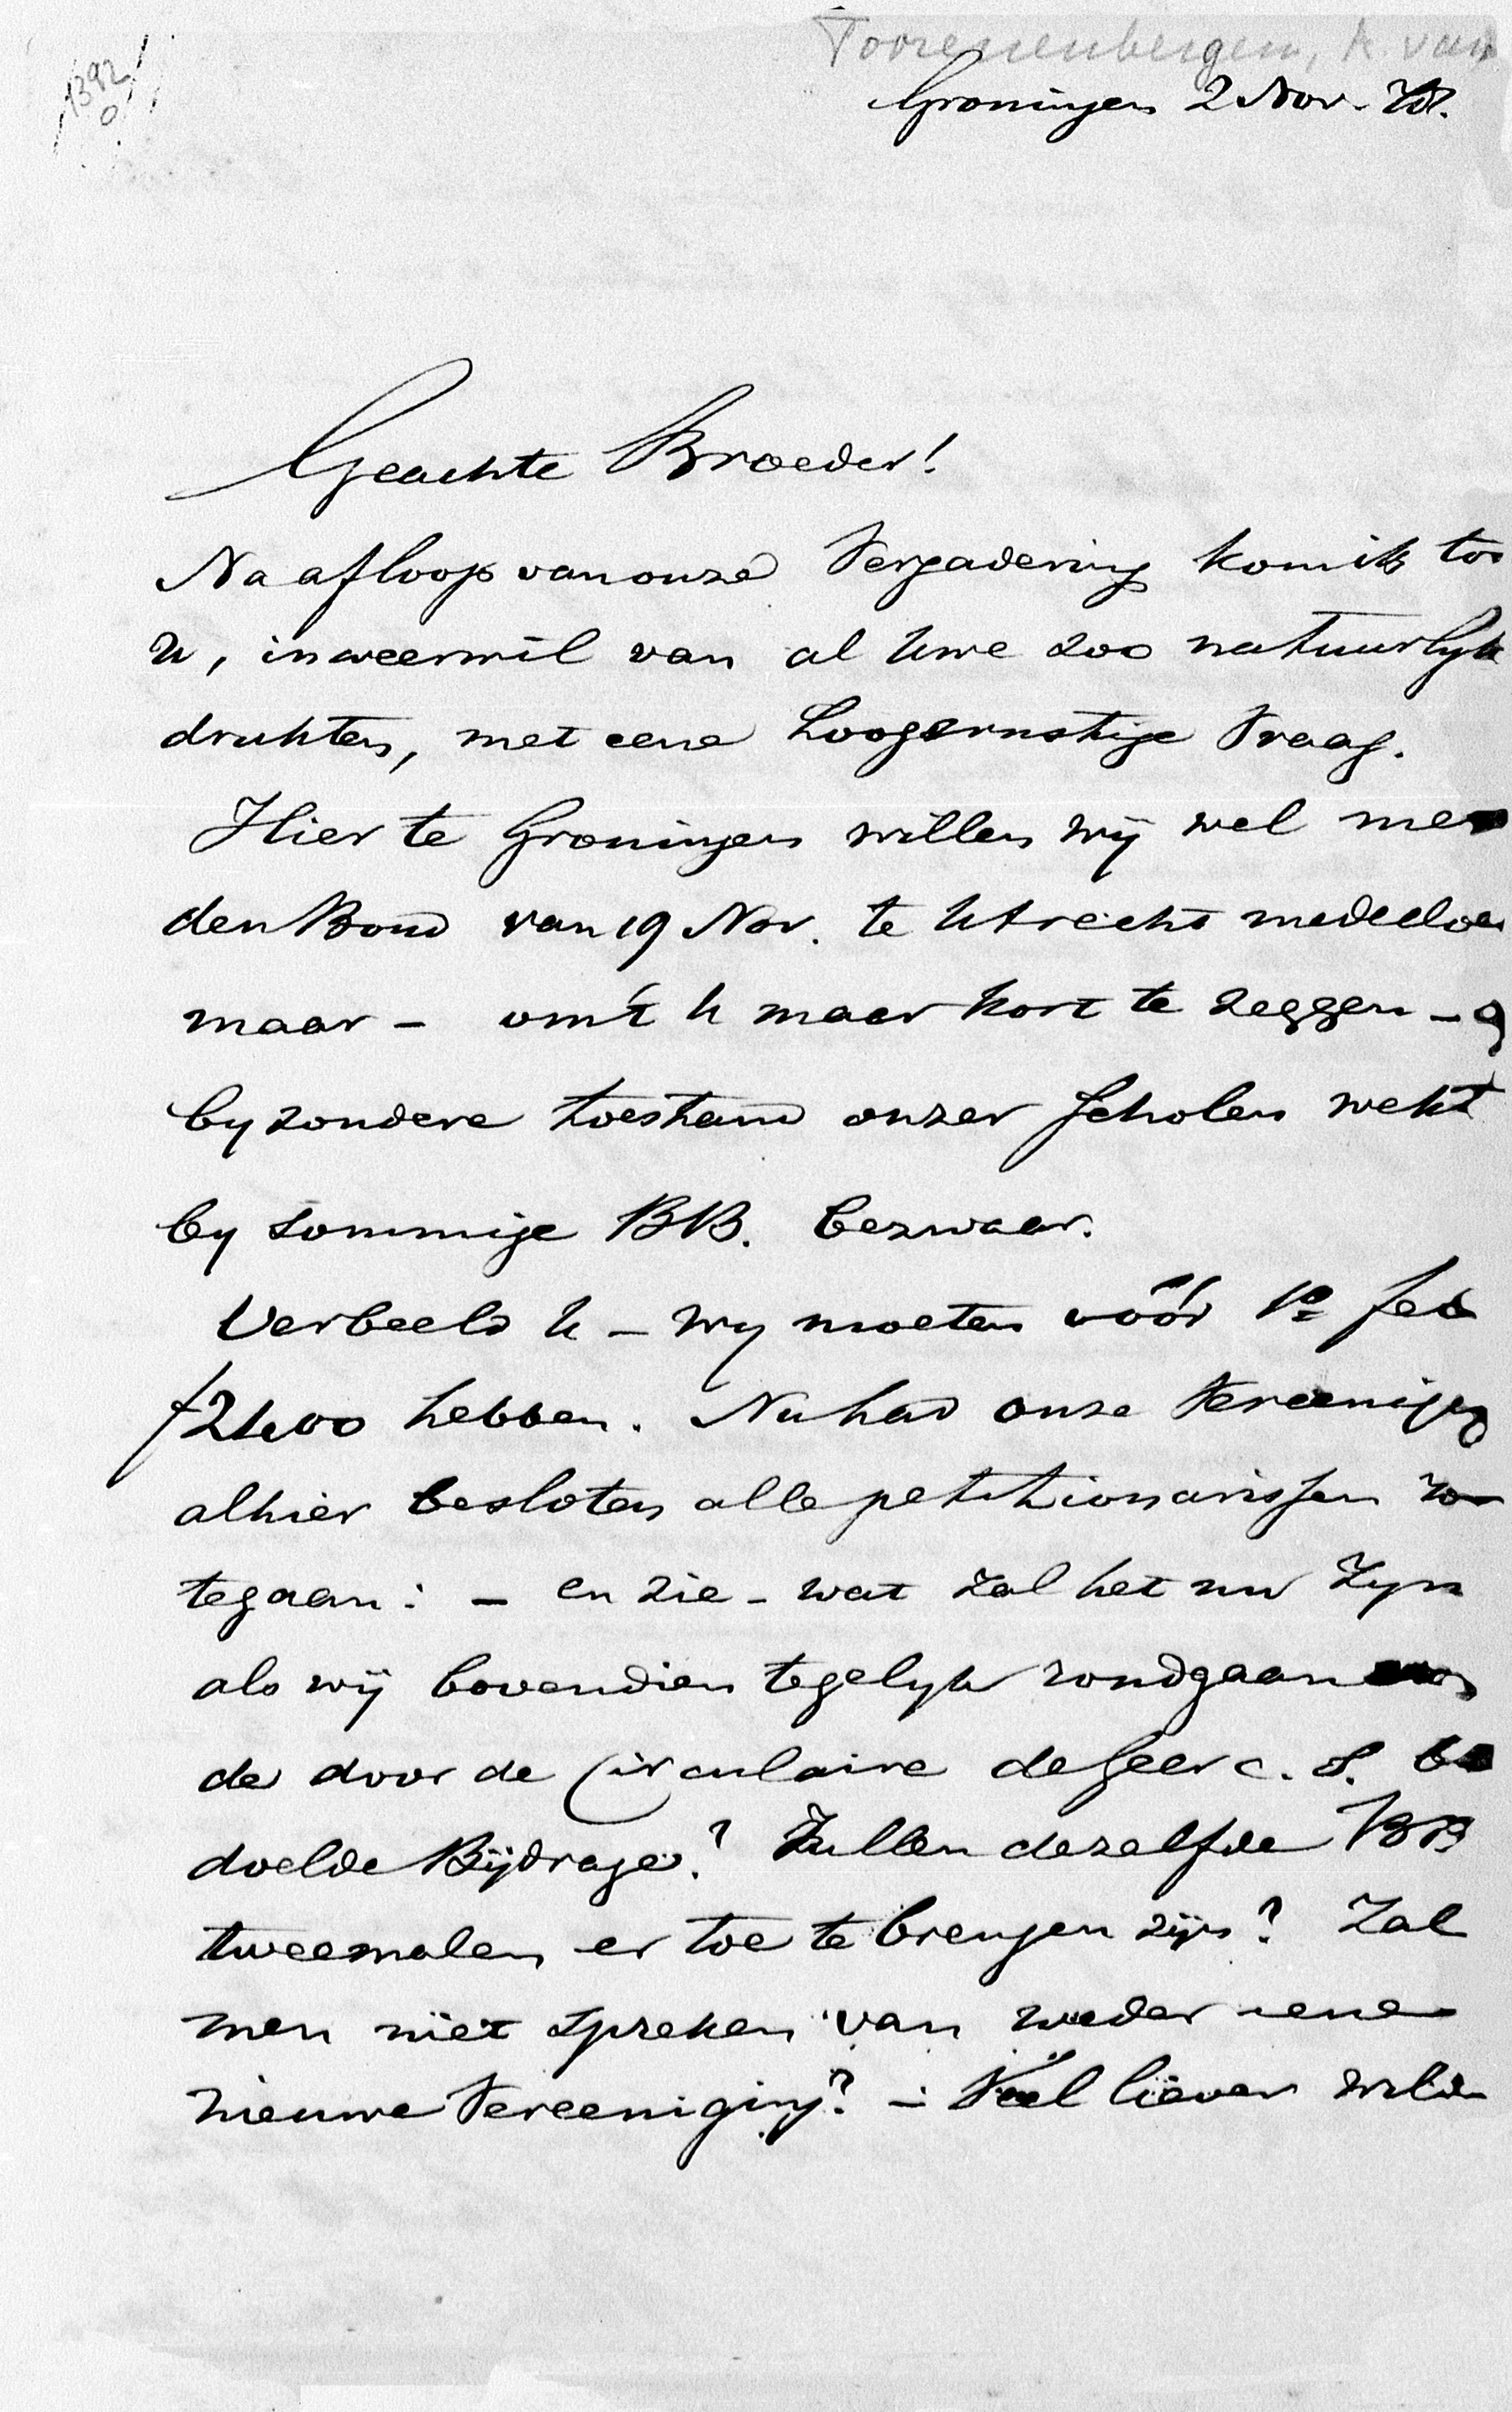 Toorenenbergen, A. van
1392
0
Groningen 2 Nov. 78.
Geachte Broeder!
Na afloop van onze Vergadering kom ik tot
U, in weerwil van al Uwe zoo natuurlyk
drukten, met eene hoogernstige Vraag.
Hier te Groningen willen wij wel met
den Bond van 19 Nov. te Utrecht mededoe
maar – om 't U maar kort te zeggen –
byzondere toestand onzer Scholen wekt
by sommige BB. bezwaar.
Verbeeld U – wy moeten vóór 1o Feb
f2400 hebben. Nu had onze Vereeniging
alhier besloten alle petitionarissen
te gaan: – en zie – wat zal het nu zyn
als wij bovendien tegelyk rondgaan
de door de Circulaire de Geer c. s. be
doelde Bijdrage? Zullen dezelfde BB
tweemalen er toe te brengen zijn? Zal
men niet spreken van weder eene
nieuwe Vereeniging? – Veel liever wilde